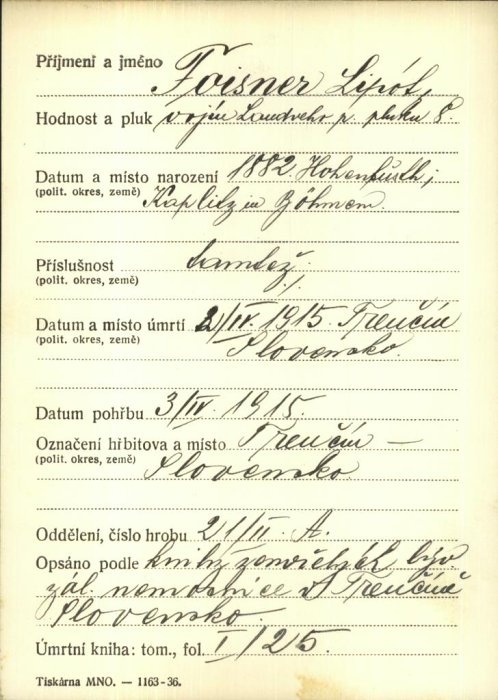 Příjmení a jméno Foisner Lipót,
Hodnost a pluk vojín Landveho p. pluku 8.
Datum a místo narození 1882. Hohenfurth;
(polit. okres, země) Kaplitz in Böhmen.
Příslušnost tamtéž;
(polit. okres, země)
Datum a místo úmrtí 2/IV. 1915. Trenčín
(polit. okres, země) Slovensko.
Datum pohřbu 3/IV. 1915.
Označení hřbitova a místo Trenčín –
(polit. okres, země) Slovensko
Oddělení, číslo hrobu 21/II. A.
Opsáno podle knihy zemřelých býv.
zál. nemocnice v Trenčíně
Slovensko.
Úmrtní kniha: tom., fol. I/25.
Tiskárna MNO. — 1163-36.